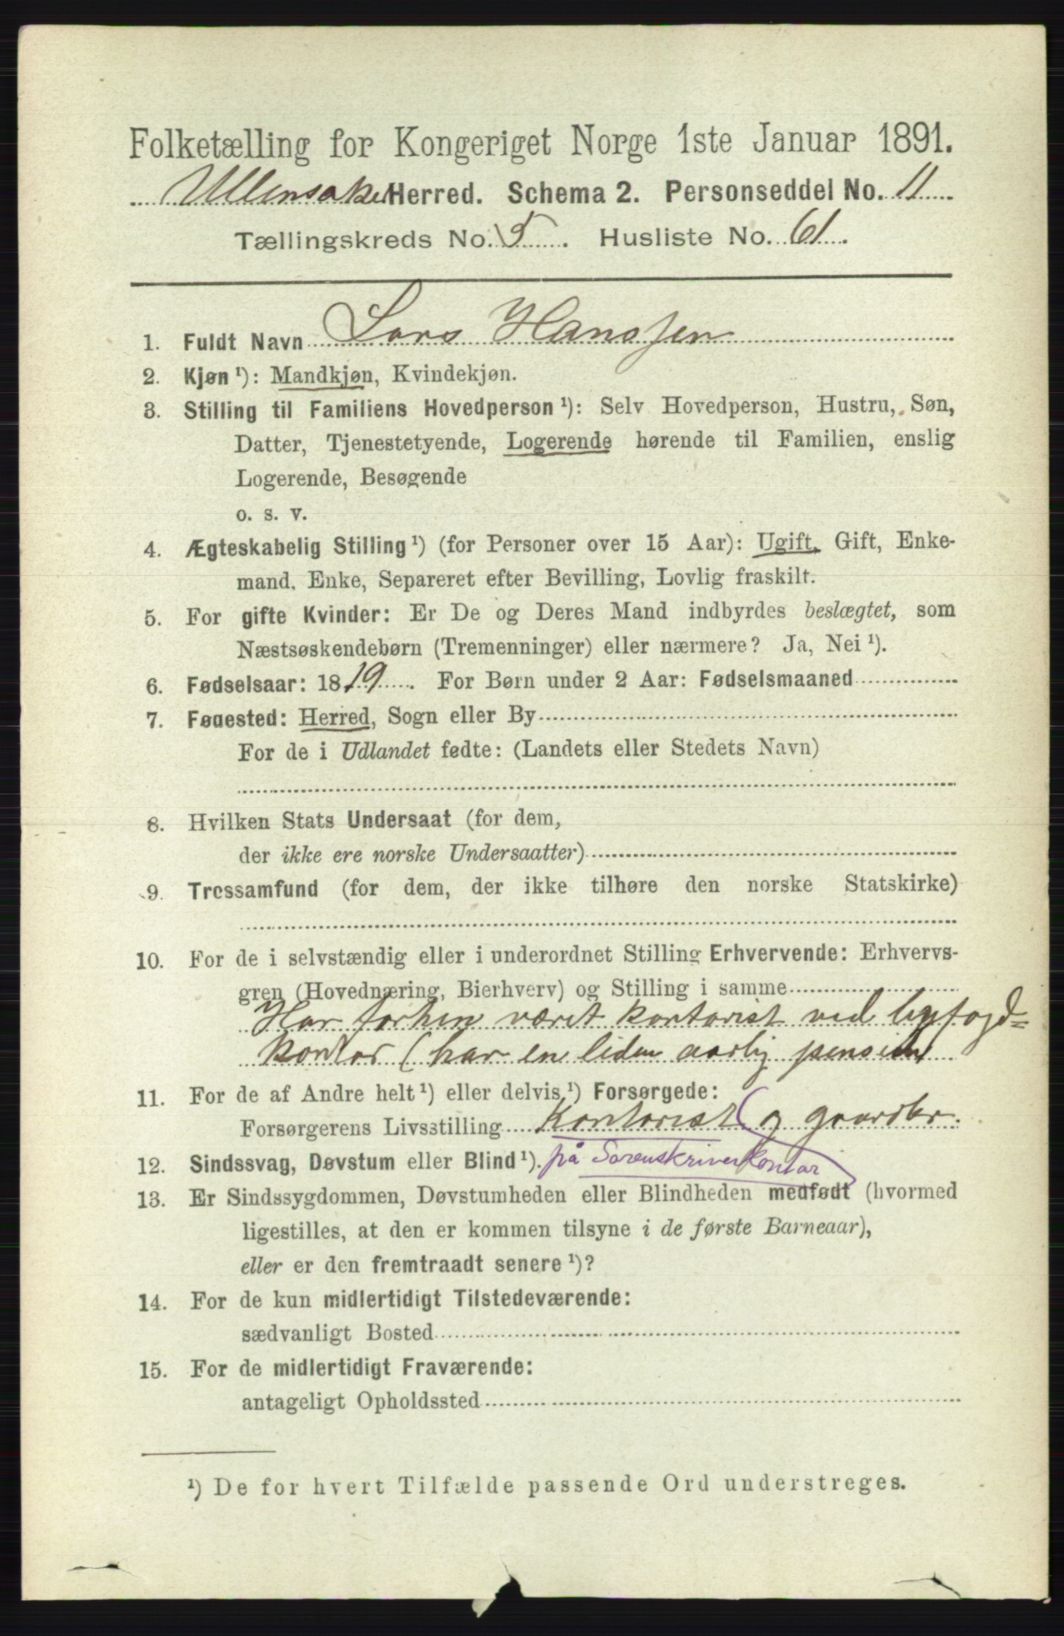 Folketælling for Kongeriget Norge 1ste Januar 1891.
Ullensaker Herred. Schema 2. Personseddel No. 11
Tællingskreds No. 5. Husliste No. 61.
1. Fuldt Navn Lars Hanssen
2. Kjøn ¹): Mandkjøn, Kvindekjøn.
3. Stilling til Familiens Hovedperson ¹): Selv Hovedperson, Hustru, Søn,
Datter, Tjenestetyende, Logerende hørende til Familien, enslig
Logerende, Besøgende
o. s. v.
4. Ægteskabelig Stilling ¹) (for Personer over 15 Aar): Ugift, Gift, Enke-
mand, Enke, Separeret efter Bevilling, Lovlig fraskilt.
5. For gifte Kvinder: Er De og Deres Mand indbyrdes beslægtet, som
Næstsøskendebørn (Tremenninger) eller nærmere? Ja, Nei ¹).
6. Fødselsaar: 1819. For Børn under 2 Aar: Fødselsmaaned
7. Fødested: Herred, Sogn eller By
For de i Udlandet fødte: (Landets eller Stedets Navn)
8. Hvilken Stats Undersaat (for dem,
der ikke ere norske Undersaatter)
9. Trossamfund (for dem, der ikke tilhøre den norske Statskirke)
10. For de i selvstændig eller i underordnet Stilling Erhvervende: Erhvervs-
gren (Hovednæring, Bierhverv) og Stilling i samme
Har forhen været kontorist ved byfogd=
kontor (har en liden aarlig pension
11. For de af Andre helt ¹) eller delvis ¹) Forsørgede:
Forsørgerens Livsstilling Kontorist og gaardbr.
12. Sindssvag, Døvstum eller Blind ¹). på Sorenskriverkontor
13. Er Sindssygdommen, Døvstumheden eller Blindheden medfødt (hvormed
ligestilles, at den er kommen tilsyne i de første Barneaar),
eller er den fremtraadt senere ¹)?
14. For de kun midlertidigt Tilstedeværende:
sædvanligt Bosted
15. For de midlertidigt Fraværende:
antageligt Opholdssted
¹) De for hvert Tilfælde passende Ord understreges.